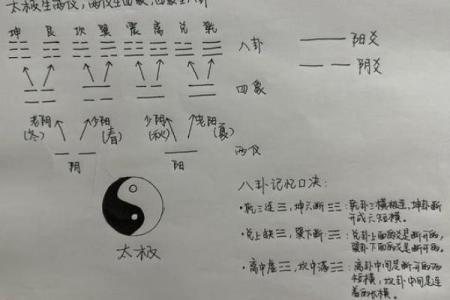 太极生两仪,两仪生四象,四象生八卦
坤 艮 坎 巽 震 离 兑 乾
八卦
阳爻
阴爻
四象
老阴 少阳 少阴 老阳
(冬) (春) (秋) (夏)
阴 阳 两仪
太极
八卦记忆口决:
·乾三连☰,坤六断☷:乾卦三横相连,坤卦断
开成六短横。
·兑上缺☱,巽下断☴:兑卦上面的爻是断开的,
巽卦下面的爻是断开的。
·离中虚☲,坎中满☵:离卦中间是断开的两
短横,坎卦中间是连
着的长横。